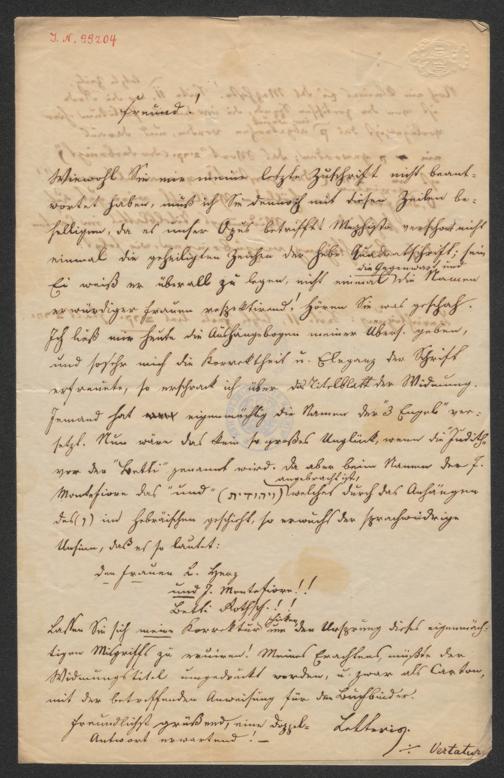 J. N. 99204
Freund!
Wiewohl Sie mir meine letzte Zuschrift nicht beant-
wortet haben, muß ich Sie dennoch mit diesen Zeilen be-
helligen, da es unser Opus betrifft! Mephisto verschont nicht
einmal die geheiligten Zeichen der hebr. Quadratschrift; sein
Ei weiß er überall zu legen, nicht einmal die Namen
die Gegenwart und
erwürdiger Frauen respektirend! Hören Sie was geschah.
Ich ließ mir heute die Aushängebogen meiner Übers. geben,
und so sehr mich die Korrektheit u. Eleganz der Schrift
erfreute, so erschrack ich über das Titelblatt der Widmung.
Jemand hat eigenmächtig die Namen der "3 Engel" ver-
setzt. Nun wäre das kein so großes Unglück, wenn die Judith
vor der "Betti" genannt wird. Da aber beim Namen der J.
Montefiore das "und" (ויהודית) angebracht ist, welches durch das Anhängen
des (ו) im Hebräischen geschieht, so erwächst der sprachwidrige
Unsinn, daß es so lautet:
den Frauen L. Herz
und J. Montefiore!!
Betti Rothsch.!!!
Lassen Sie sich meine Korrektur schicken um den Ursprung dieses eigenmäch-
tigen Mißgriffs zu eruiren! Meines Erachtens müßte der
Widmungstitel umgedruckt werden, u. zwar als Carton,
mit der betreffenden Anweisung für den Buchbinder.
Freundlichst grüßend, eine Doppel-
Antwort erwartend! —
Letteris.
Vertatur